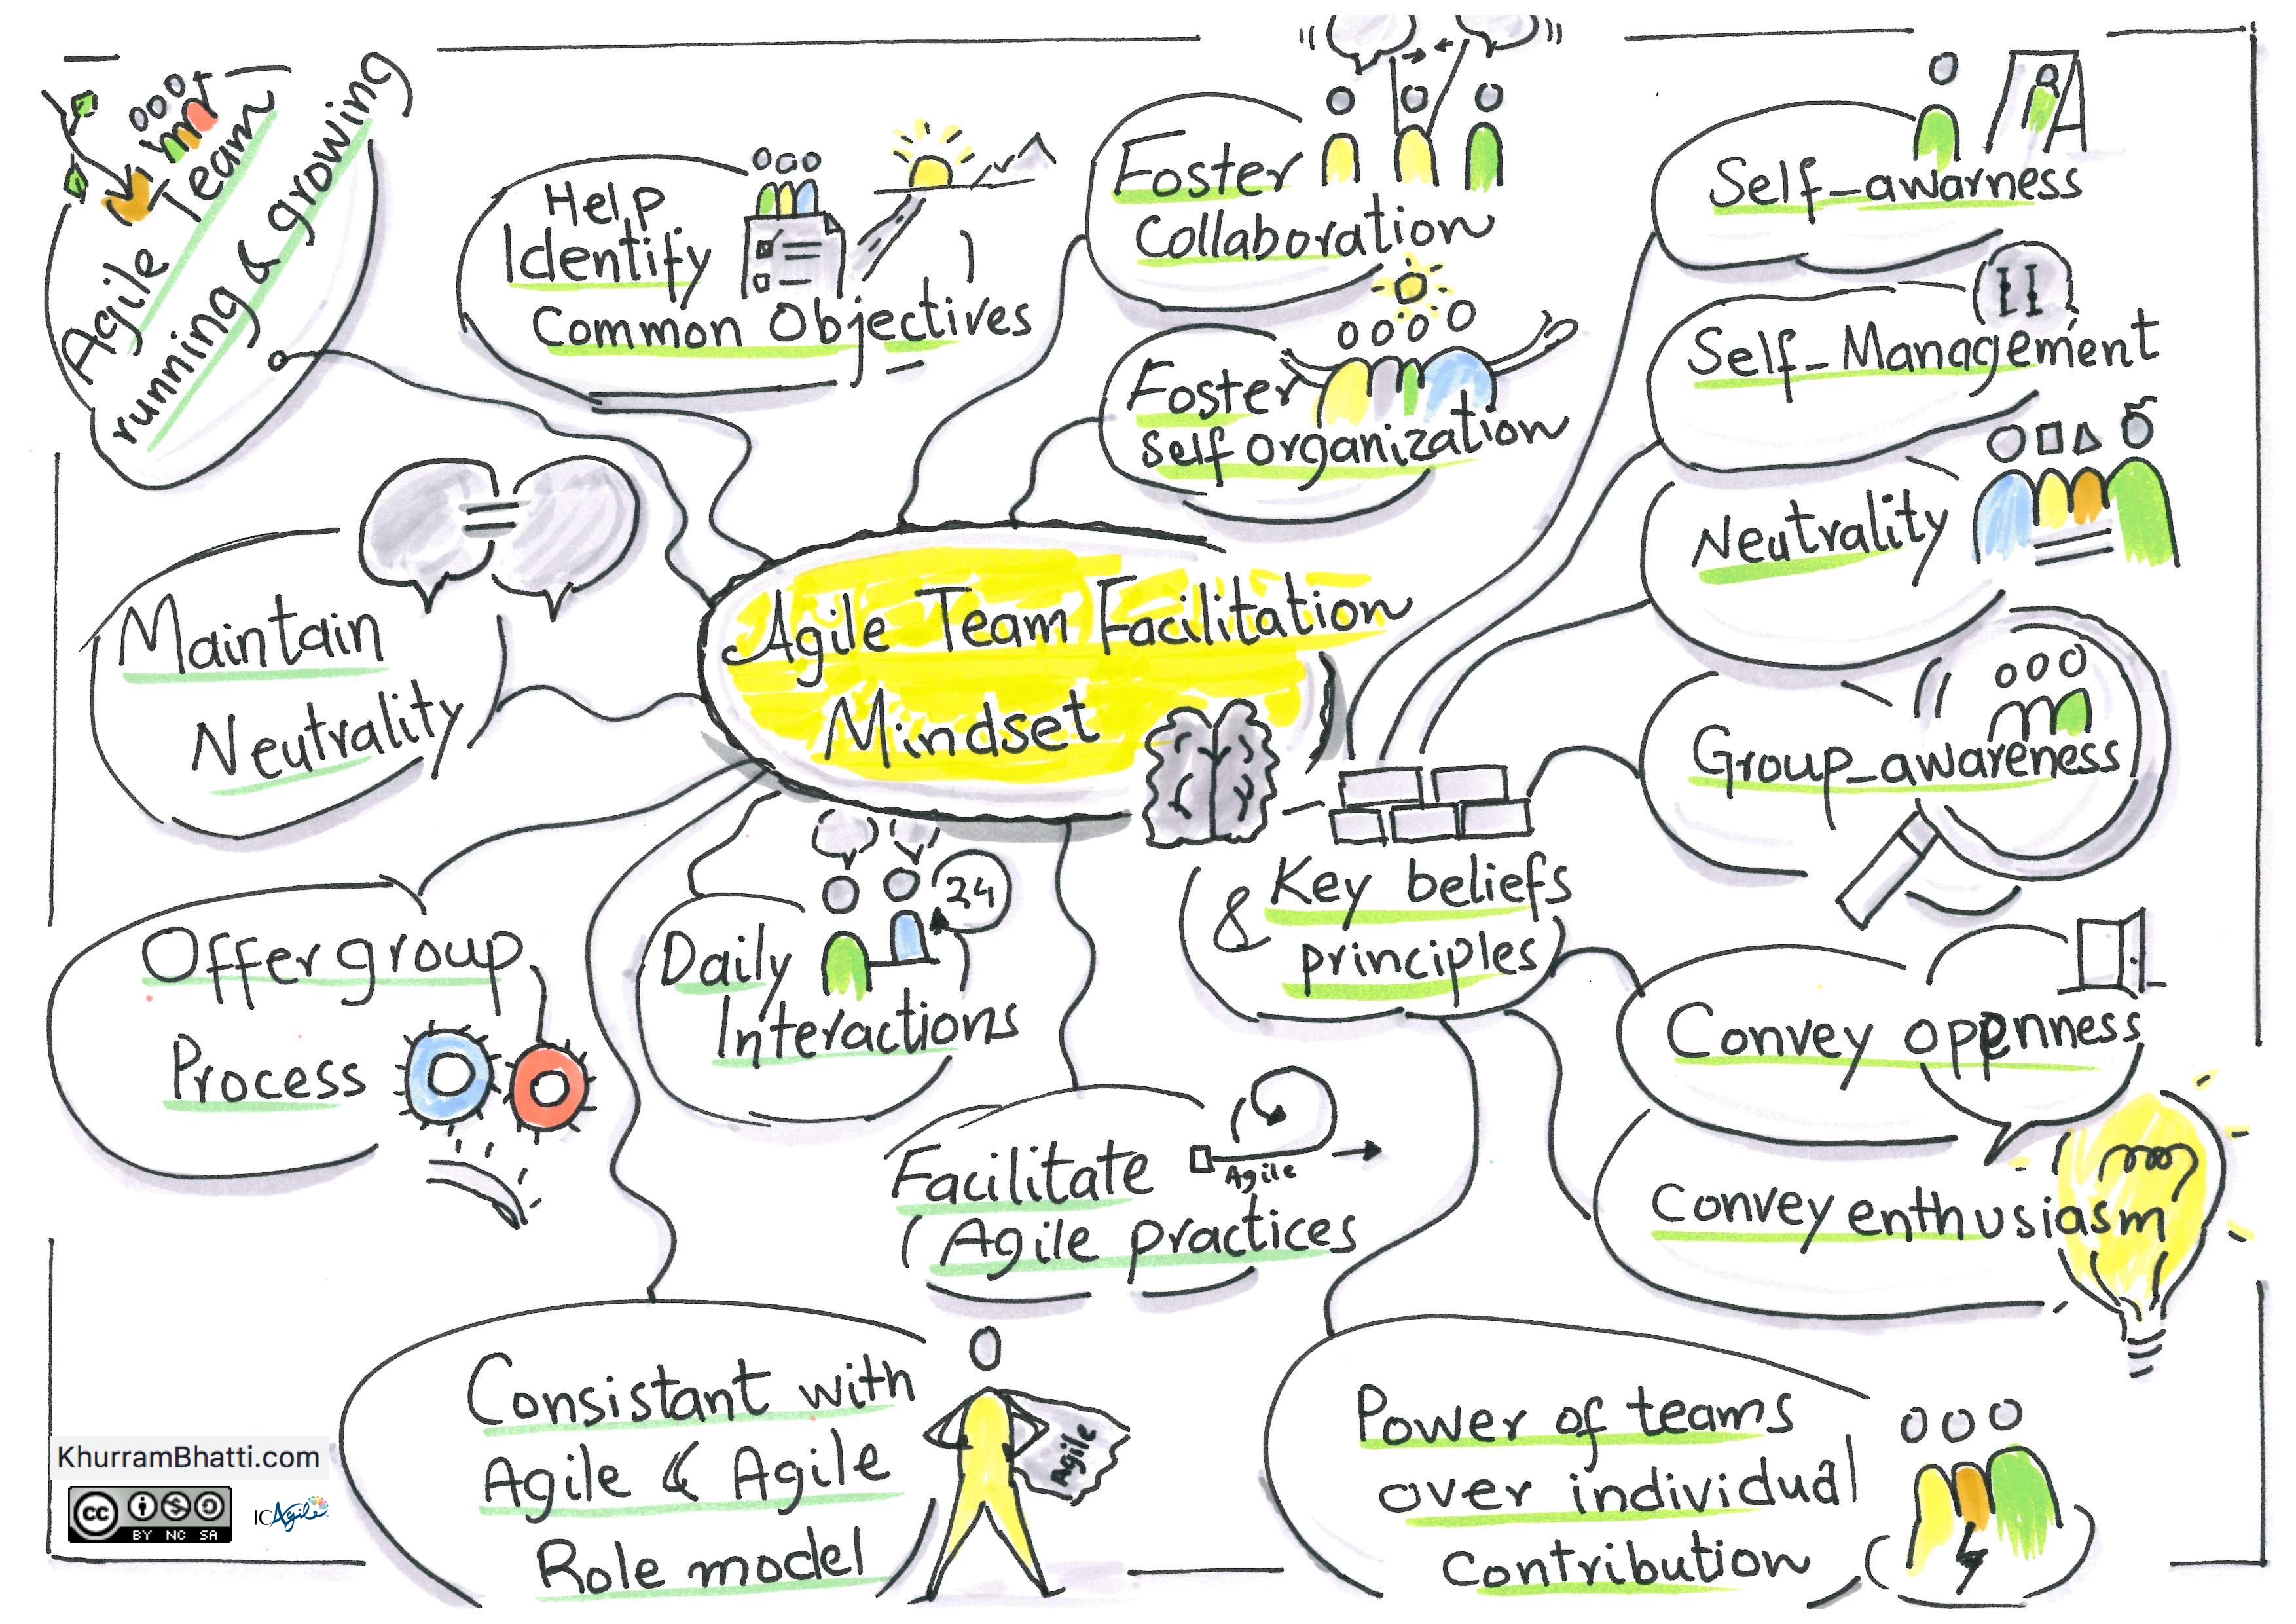 Agile Team
running & growing
Help
Identify
Common Objectives
Foster
Collaboration
Foster
Self organization
Self-awarness
Self-Management
Neutrality
Group-awareness
Maintain
Neutrality
Agile Team Facilitation
Mindset
Key beliefs
& principles
Offer group
Process
24
Daily
Interactions
Convey oppnness
Convey enthusiasm
Agile
Facilitate
Agile practices
Consistant with
Agile & Agile
Role model
Agile
Power of teams
over individual
Contribution
KhurramBhatti.com
cc
BY NC SA
ICAgile